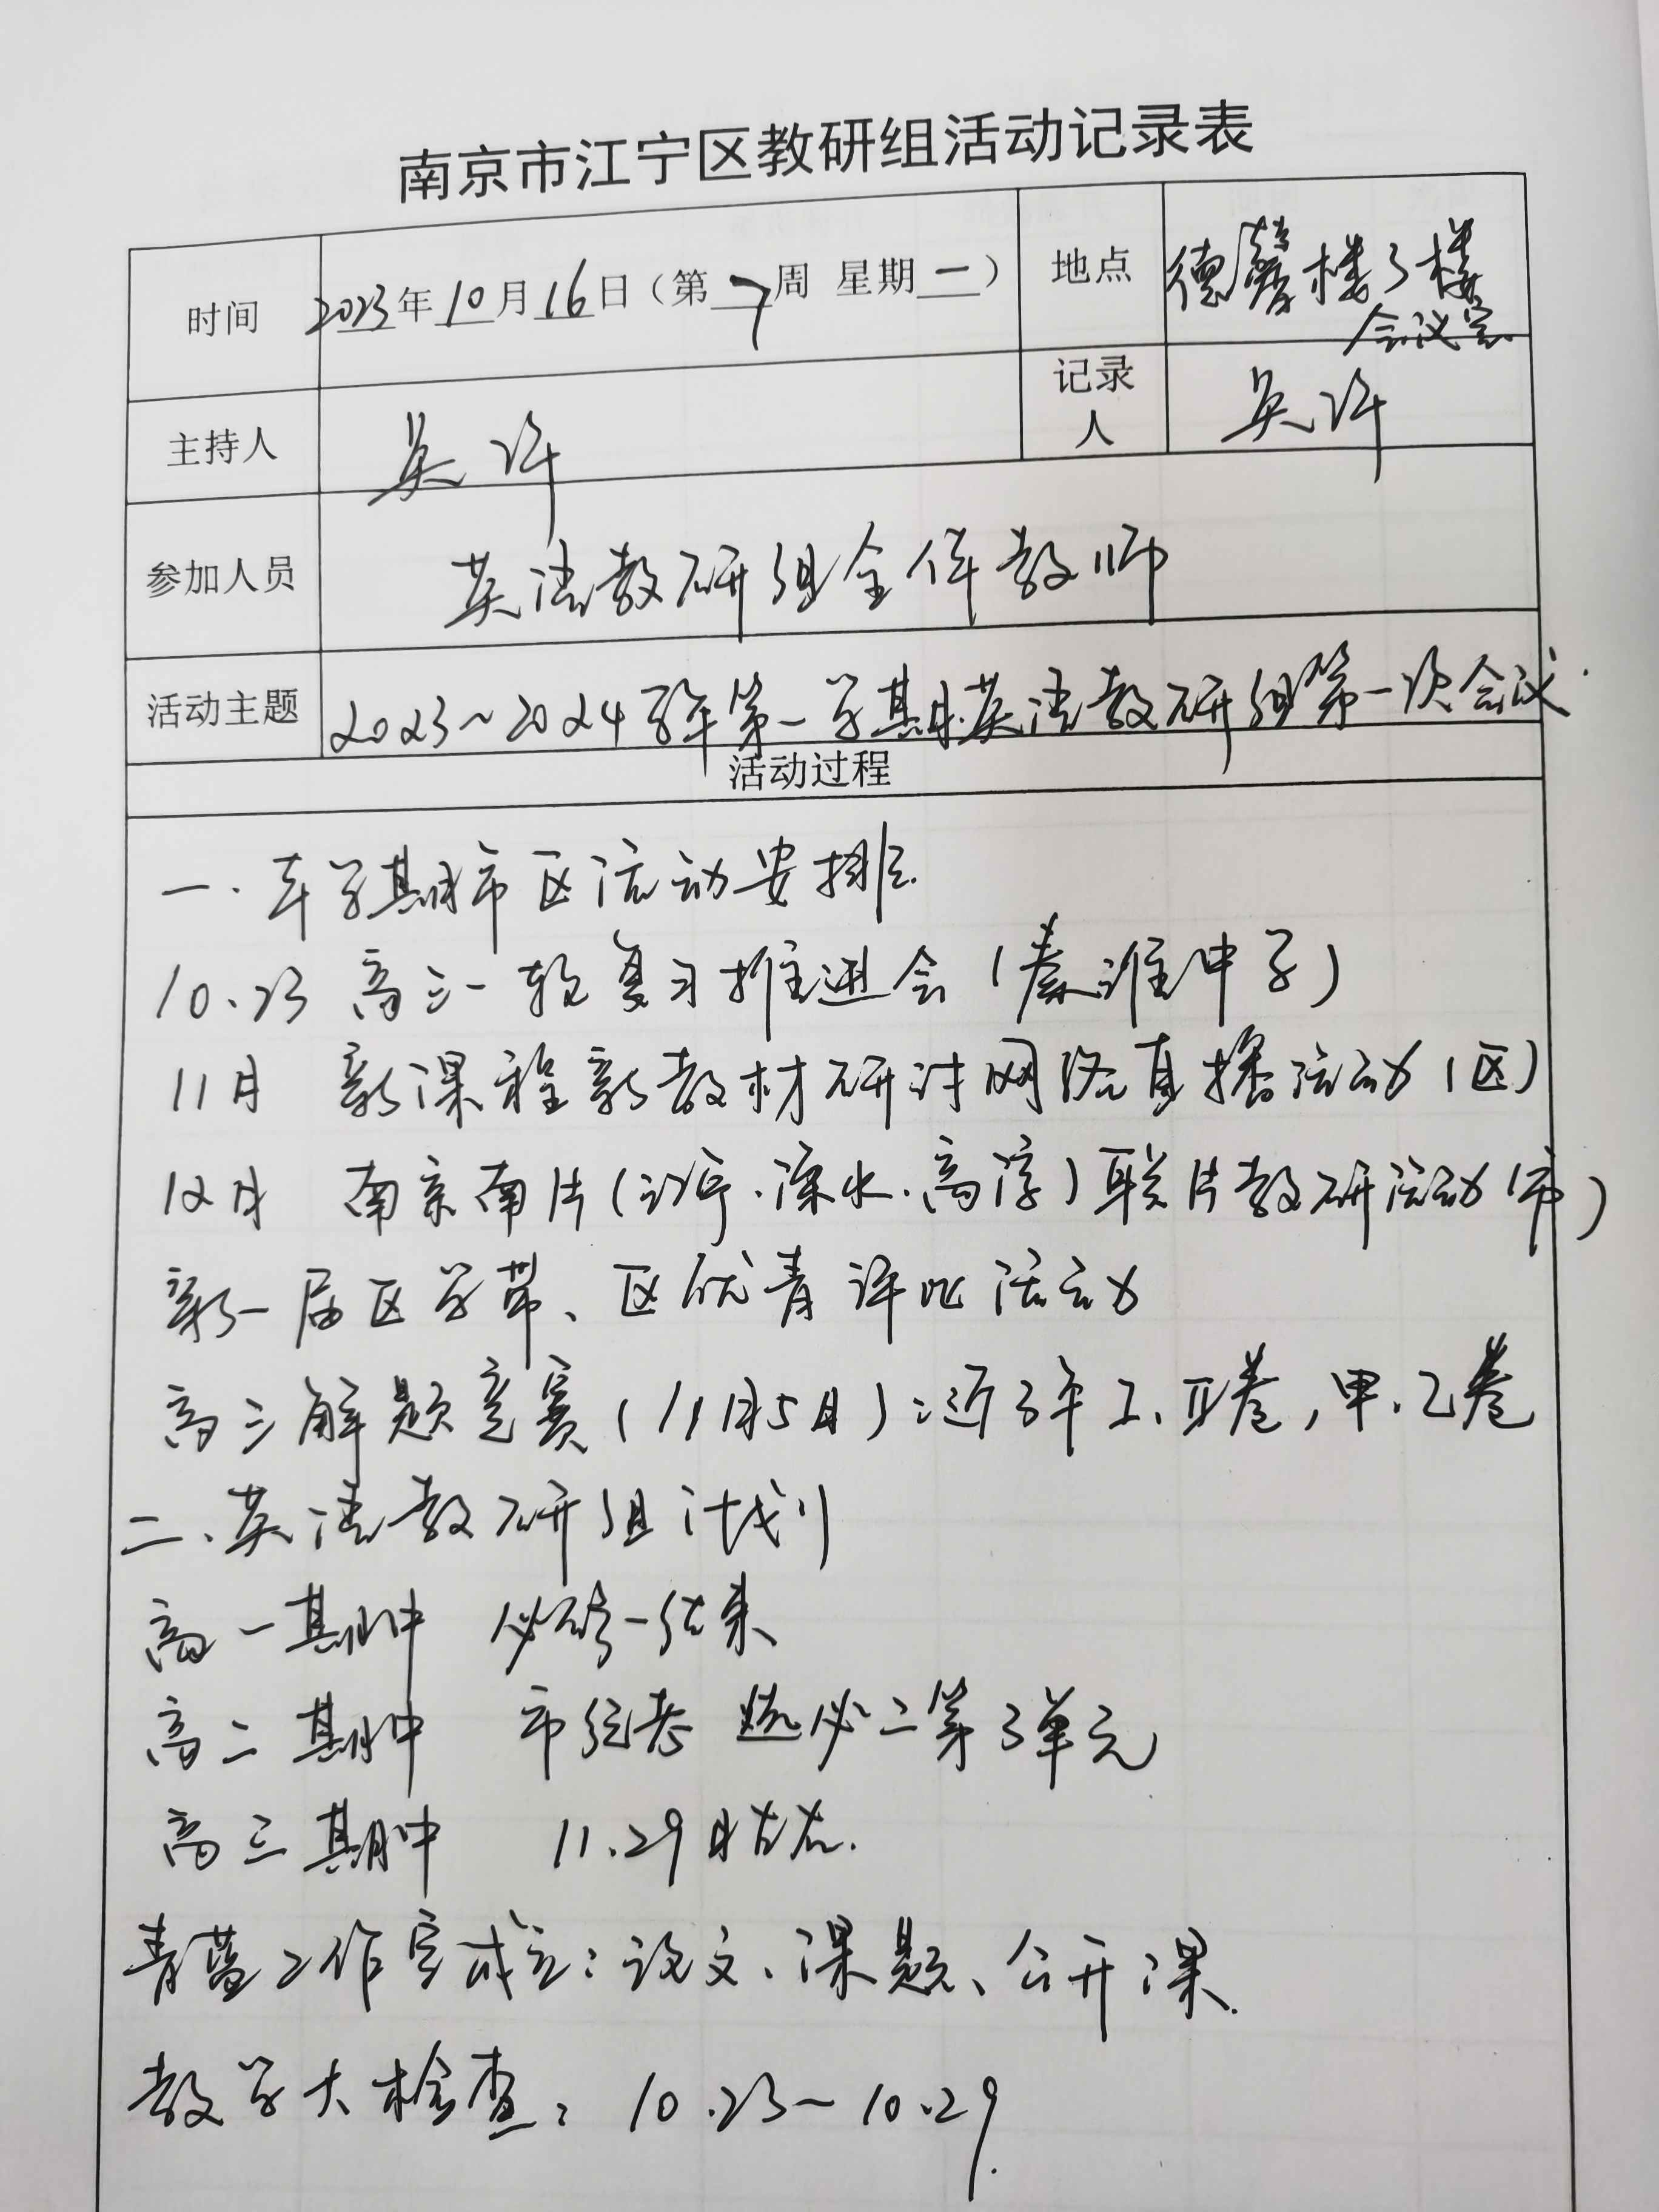 南京市江宁区教研组活动记录表
时间 2023年10月16日（第7周 星期一） 地点 德馨楼3楼
会议室
主持人 吴许 记录人 吴许
参加人员 英语教研组全体教师
活动主题 2023~2024学年第一学期英语教研组第一次会议.
活动过程
一.本学期市区活动安排.
10.23 高三一轮复习推进会（秦淮中学）
11月 新课程新教材研讨网络直播活动（区）
12月 南京南片（江宁.溧水.高淳）联片教研活动（市）
新一届区学带、区优青评比活动
高三解题竞赛（11月5日）：近3年I、II卷，甲、乙卷
二、英语教研组计划
高一期中 必修一结束
高二期中 市统考 选必二第3单元
高三期中 11.29日左右.
青蓝工作室成立：论文、课题、公开课.
教学大检查：10.23~10.29.